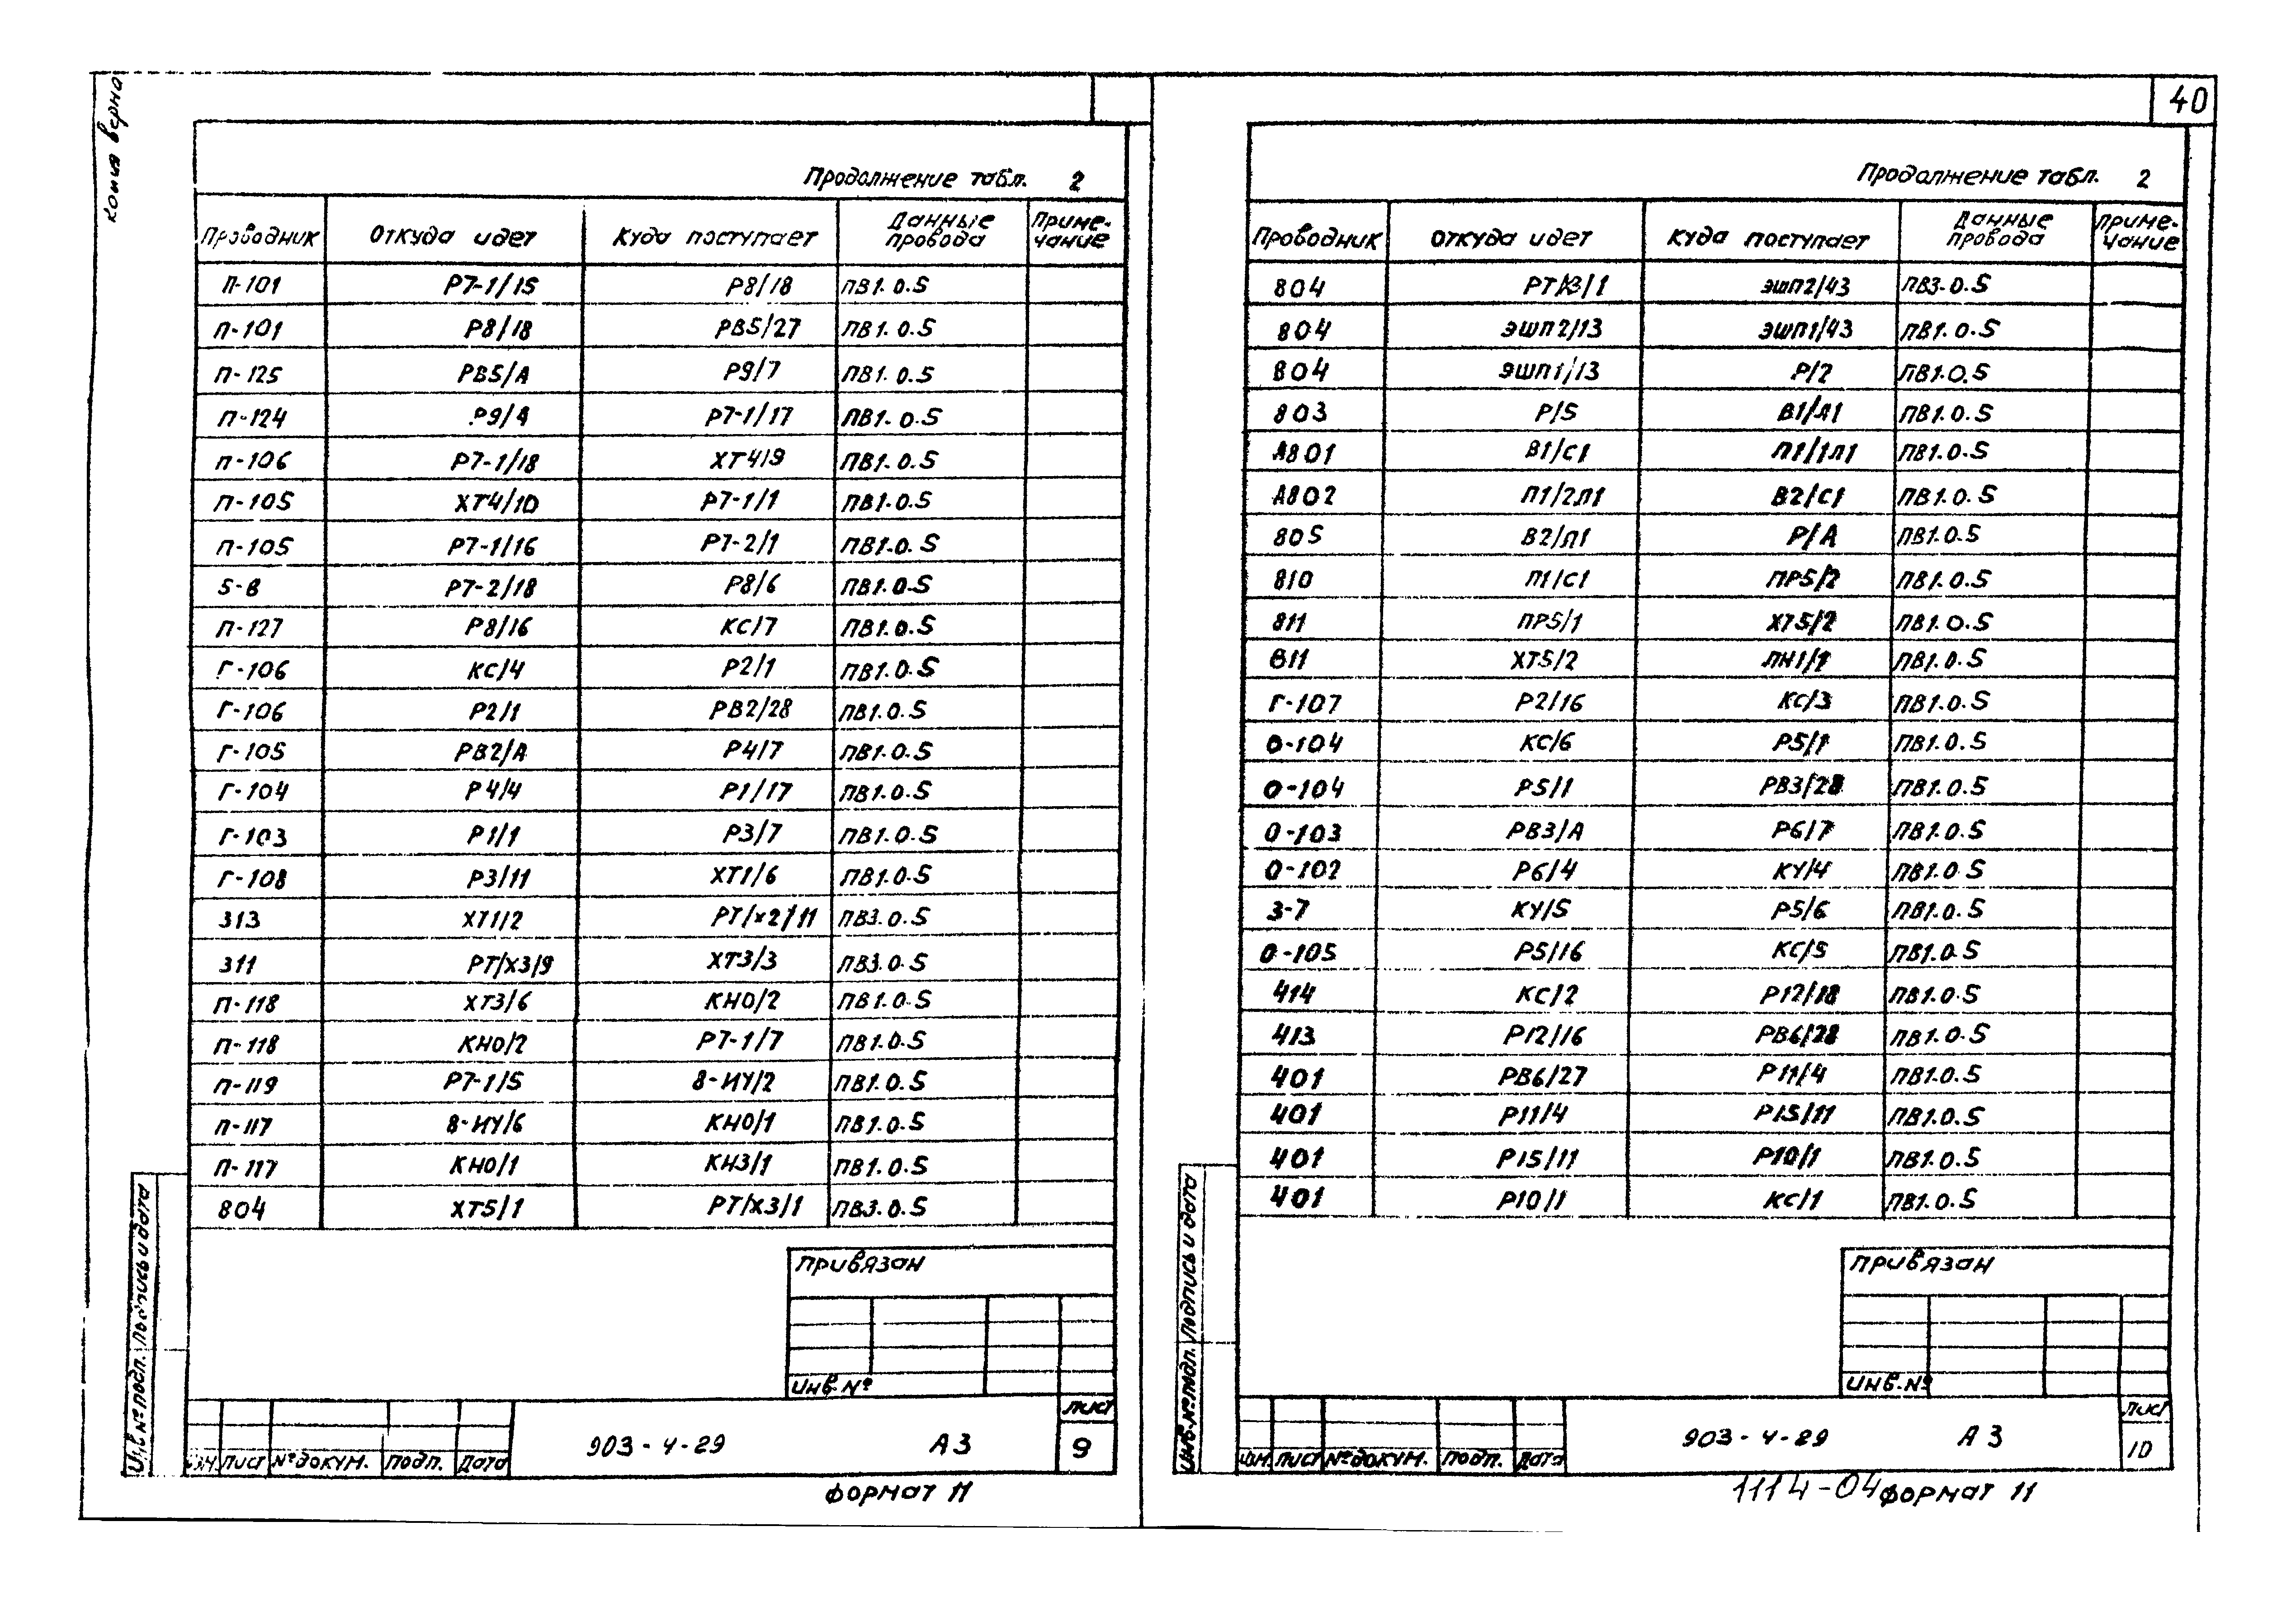 копия верна
Продолжение табл. 2
Проводник Откуда идет Куда поступает Данные провода Приме-чание
П-101 Р7-1/15 Р8/18 ПВ1.0.5
П-101 Р8/18 РВ5/27 ПВ1.0.5
П-125 РВ5/А Р9/7 ПВ1.0.5
П-124 Р9/4 Р7-1/17 ПВ1.0.5
П-106 Р7-1/18 ХТ4/9 ПВ1.0.5
П-105 ХТ4/10 Р7-1/1 ПВ1.0.5
П-105 Р7-1/16 Р7-2/1 ПВ1.0.5
5-8 Р7-2/18 Р8/6 ПВ1.0.5
П-127 Р8/16 КС/7 ПВ1.0.5
Г-106 КС/4 Р2/1 ПВ1.0.5
Г-106 Р2/1 РВ2/28 ПВ1.0.5
Г-105 РВ2/А Р4/7 ПВ1.0.5
Г-104 Р4/4 Р1/17 ПВ1.0.5
Г-103 Р1/1 Р3/7 ПВ1.0.5
Г-108 Р3/11 ХТ1/6 ПВ1.0.5
313 ХТ1/2 РТ/х2/11 ПВ3.0.5
311 РТ/Х3/9 ХТ3/3 ПВ3.0.5
П-118 ХТ3/6 КНО/2 ПВ1.0.5
П-118 КНО/2 Р7-1/7 ПВ1.0.5
П-119 Р7-1/5 8-ИУ/2 ПВ1.0.5
П-117 8-ИУ/6 КНО/1 ПВ1.0.5
П-117 КНО/1 КНЗ/1 ПВ1.0.5
804 ХТ5/1 РТ/Х3/1 ПВ3.0.5
Привязан
Инв.№
Инв.№подл. Подпись и дата
Изм. Лист №докум. Подп. Дата
903-4-29 А3
Лист
9
Формат 11
40
Продолжение табл. 2
Проводник Откуда идет Куда поступает Данные провода Приме-чание
804 РТ/Х3/1 ЭШП2/43 ПВ3.0.5
804 ЭШП2/13 ЭШП1/43 ПВ1.0.5
804 ЭШП1/13 Р/2 ПВ1.0.5
803 Р/5 В1/Л1 ПВ1.0.5
А801 В1/С1 П1/1Л1 ПВ1.0.5
А802 П1/2Л1 В2/С1 ПВ1.0.5
805 В2/Л1 Р/А ПВ1.0.5
810 П1/С1 ПР5/2 ПВ1.0.5
811 ПР5/1 ХТ5/2 ПВ1.0.5
811 ХТ5/2 ЛН1/1 ПВ1.0.5
Г-107 Р2/16 КС/3 ПВ1.0.5
О-104 КС/6 Р5/1 ПВ1.0.5
О-104 Р5/1 РВ3/28 ПВ1.0.5
О-103 РВ3/А Р6/7 ПВ1.0.5
О-102 Р6/4 КУ/4 ПВ1.0.5
3-7 КУ/5 Р5/6 ПВ1.0.5
О-105 Р5/16 КС/5 ПВ1.0.5
414 КС/2 Р12/18 ПВ1.0.5
413 Р12/16 РВ6/28 ПВ1.0.5
401 РВ6/27 Р11/4 ПВ1.0.5
401 Р11/4 Р15/11 ПВ1.0.5
401 Р15/11 Р10/1 ПВ1.0.5
401 Р10/1 КС/1 ПВ1.0.5
Привязан
Инв.№
Инв.№подл. Подпись и дата
Изм. Лист №докум. Подп. Дата
903-4-29 А3
Лист
10
1114-04 Формат 11